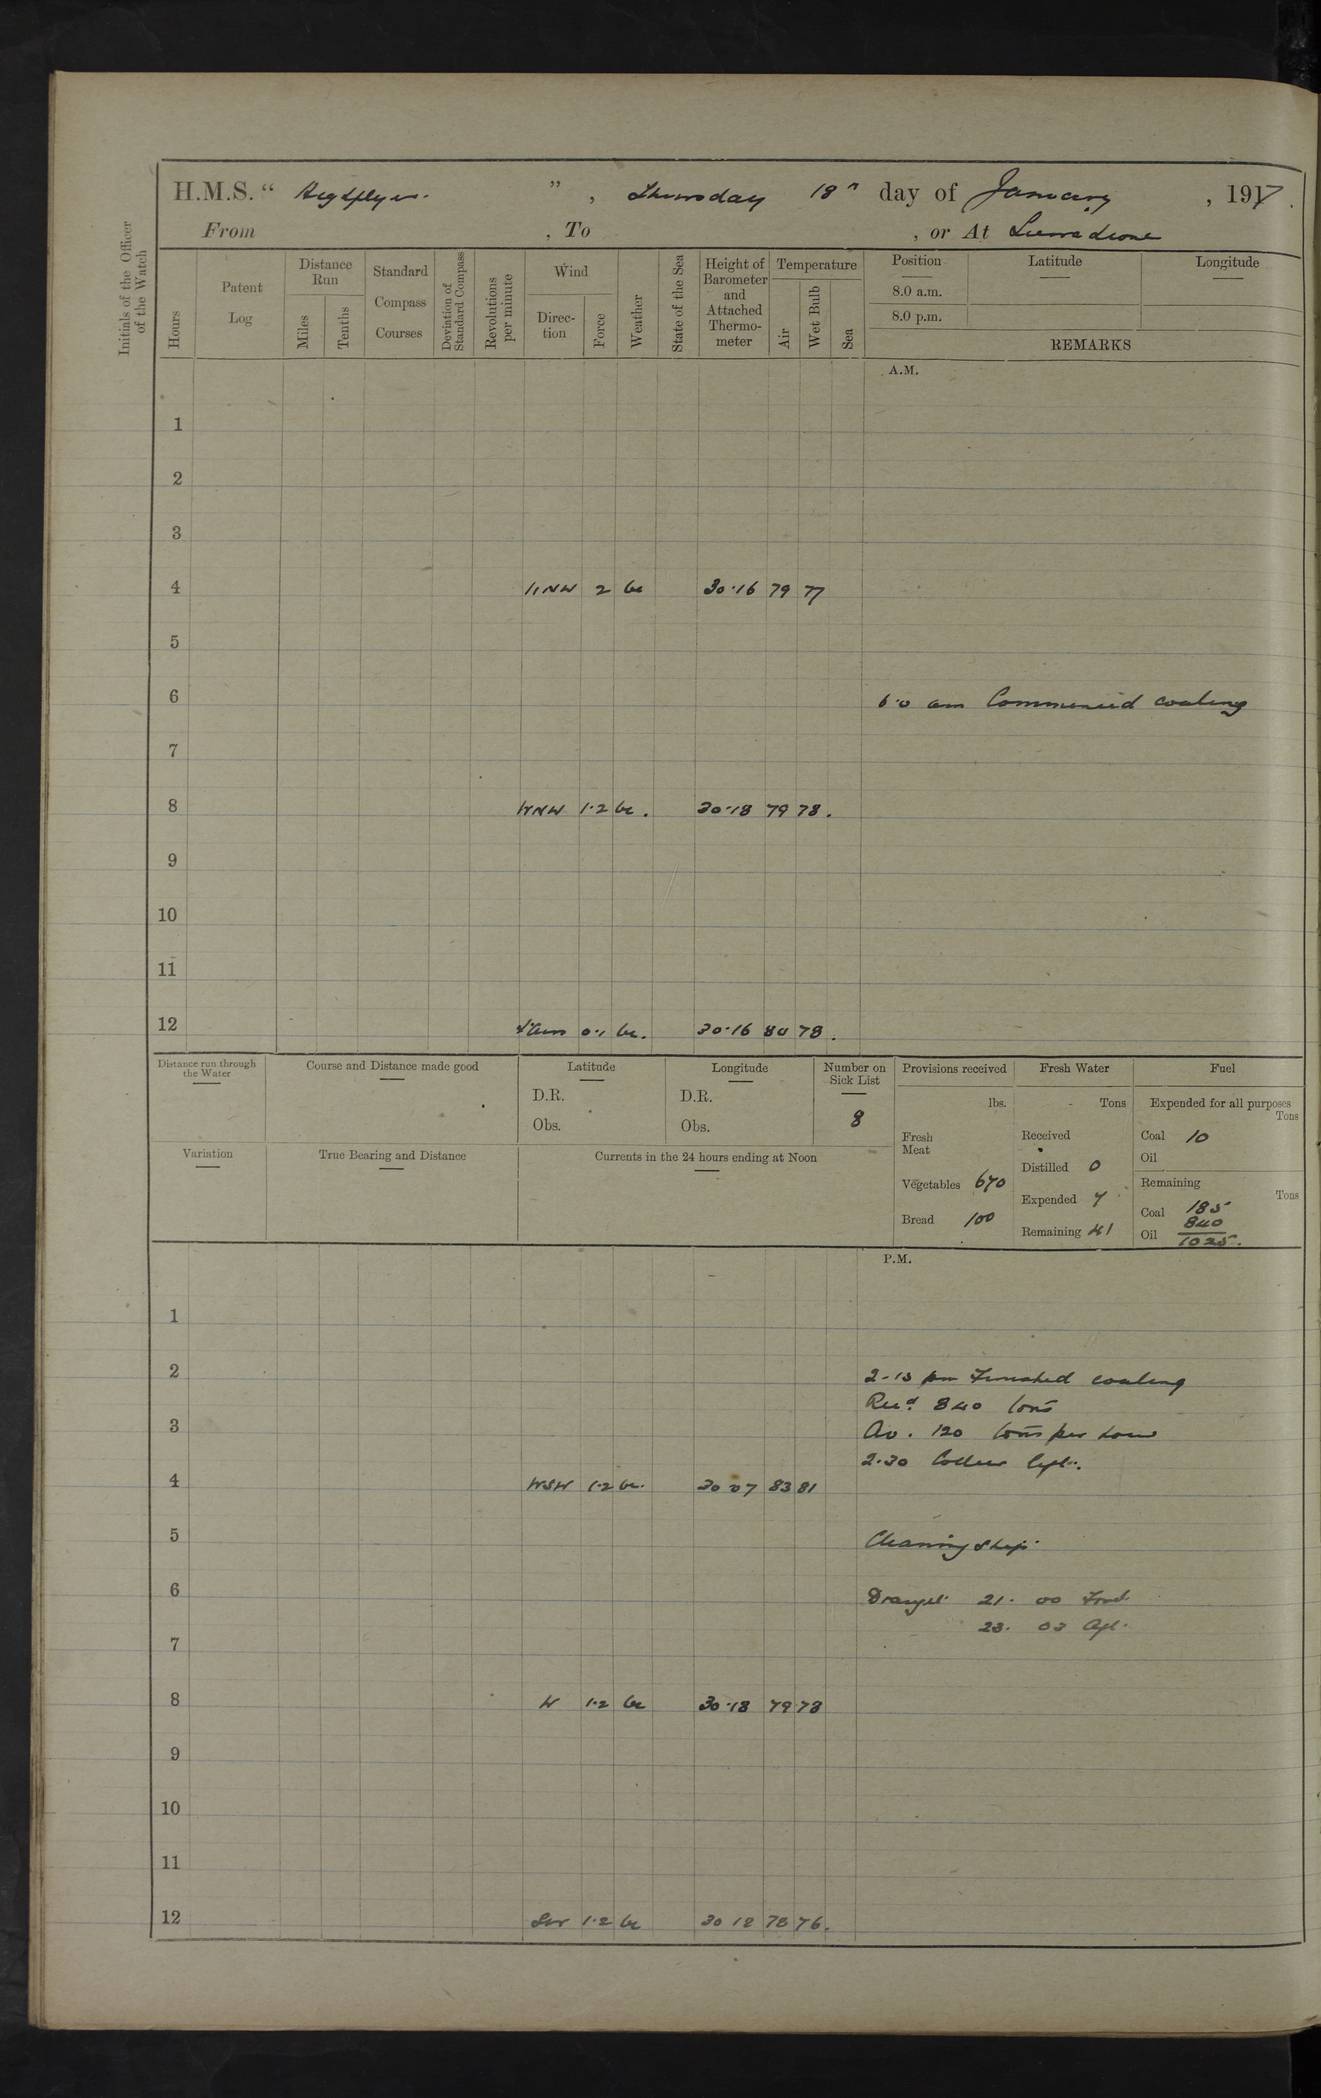 H.M.S. " Highflyer. ", Thursday 18th day of January, 1917.
From , To , or At Sierra Leone
Initials of the Officer of the Watch
Hours
Patent Log
Distance Run
Miles
Tenths
Standard Compass Courses
Deviation of Standard Compass
Revolutions per minute
Wind
Direction
Force
Weather
State of the Sea
Height of Barometer and Attached Thermometer
Temperature
Air
Wet Bulb
Sea
Position Latitude Longitude
8.0 a.m.
8.0 p.m.
REMARKS
A.M.
1
2
3
4 WNW 2 bc 30.16 79 77
5
6 6.0 am Commenced coaling
7
8 WNW 1.2 bc. 30.18 79 78.
9
10
11
12 0.1 bc. 30.16 80 78.
Distance run through the Water
Course and Distance made good
Latitude
D.R.
Obs.
Longitude
D.R.
Obs.
Number on Sick List
8
Variation
True Bearing and Distance
Currents in the 24 hours ending at Noon
Provisions received
lbs.
Fresh Meat
Vegetables 670
Bread 100
Fresh Water
Tons
Received
Distilled 0
Expended 7
Remaining 41
Fuel
Expended for all purposes
Tons
Coal 10
Oil
Remaining
Tons
Coal 185
840
Oil 1025.
P.M.
1
2 2-15 pm Finished coaling
Recd. 840 tons
3 Av. 120 tons per hour
2.30 Collier left.
4 WSW 1.2 bc. 30 07 83 81
5 Cleaning ship.
6 Draught 21. 00 Ford.
23. 03 Aft.
7
8 W 1.2 bc 30.18 79 78
9
10
11
12 1.2 bc 30 18 78 76.